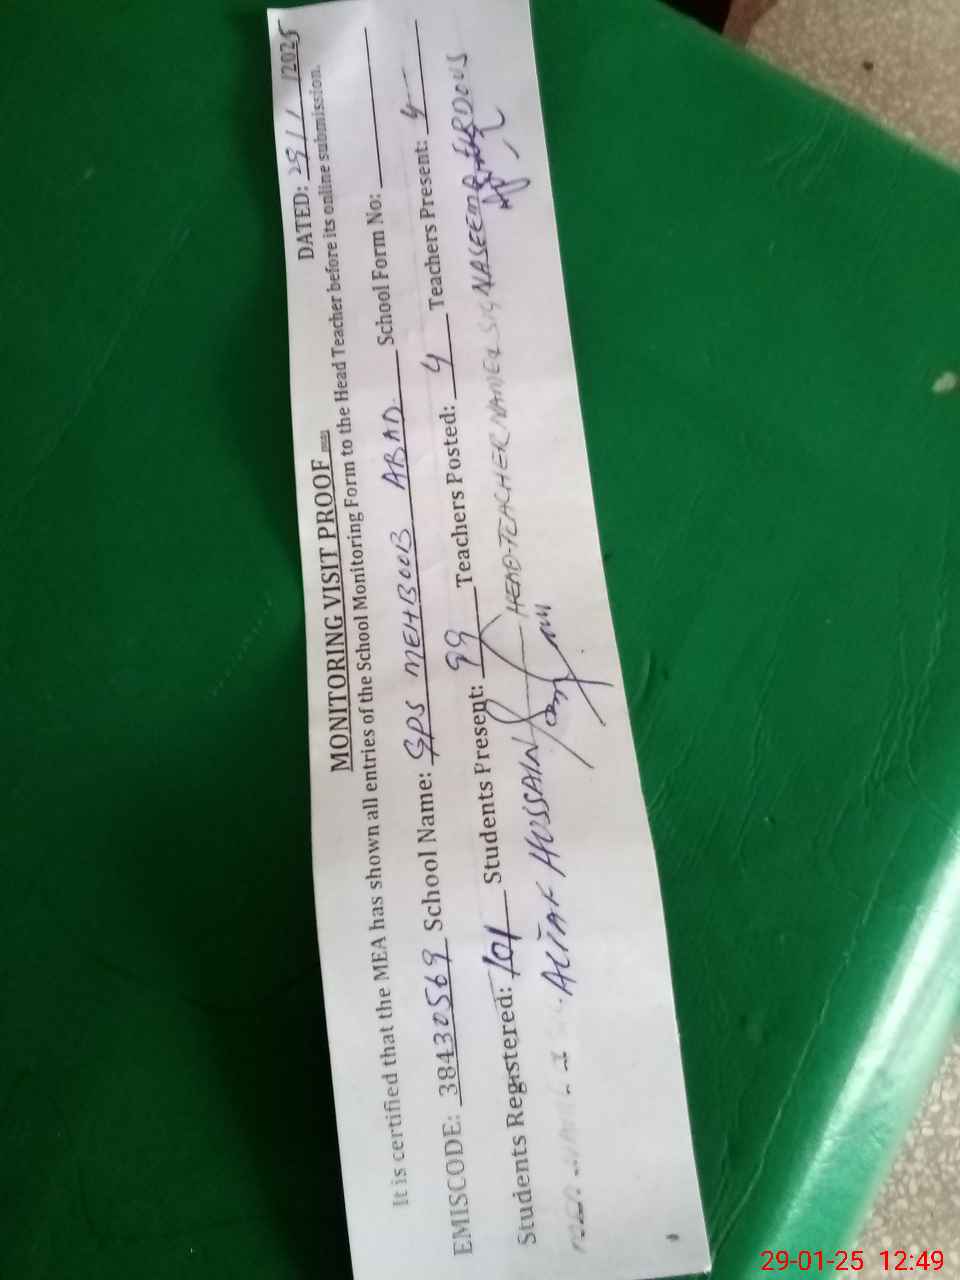 DATED: 29/1/2025
MONITORING VISIT PROOF
It is certified that the MEA has shown all entries of the School Monitoring Form to the Head Teacher before its online submission.
EMISCODE: 38430569 School Name: GPS MEHBOOB ABAD. School Form No:
Students Registered: 101 Students Present: 99 Teachers Posted: 4 Teachers Present: 4
ALTAF HUSSAIN HEAD-TEACHER NAME & SIG NASEEM FIRDOUS
29-01-25 12:49